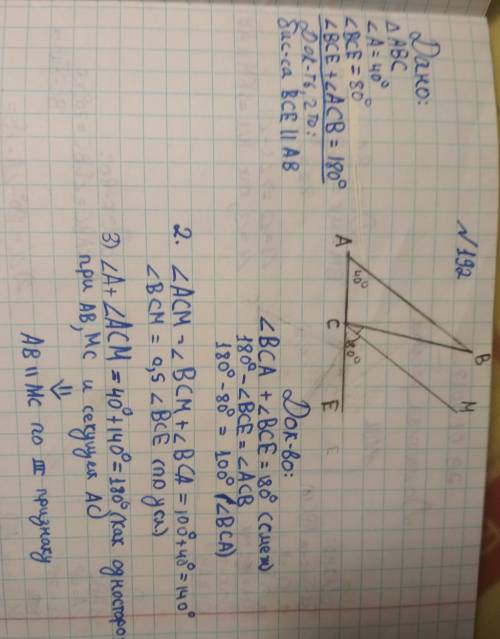 №192
Дано:
△ABC
∠A = 40°
∠BCE = 80°
∠BCE + ∠ACB = 180°
Док-ть, что:
бис-са BCE || AB
A
40°
B
C
80°
M
E
Док-во:
∠BCA + ∠BCE = 180° (смеж)
180° - ∠BCE = ∠ACB
180° - 80° = 100° (∠BCA)
2. ∠ACM = ∠BCM + ∠BCA = 100° + 40° = 140°
∠BCM = 0,5 ∠BCE (по усл)
3) ∠A + ∠ACM = 40° + 140° = 180° (как односторо
при AB, MC и секущей AC)
⇓
AB || MC по III признаку